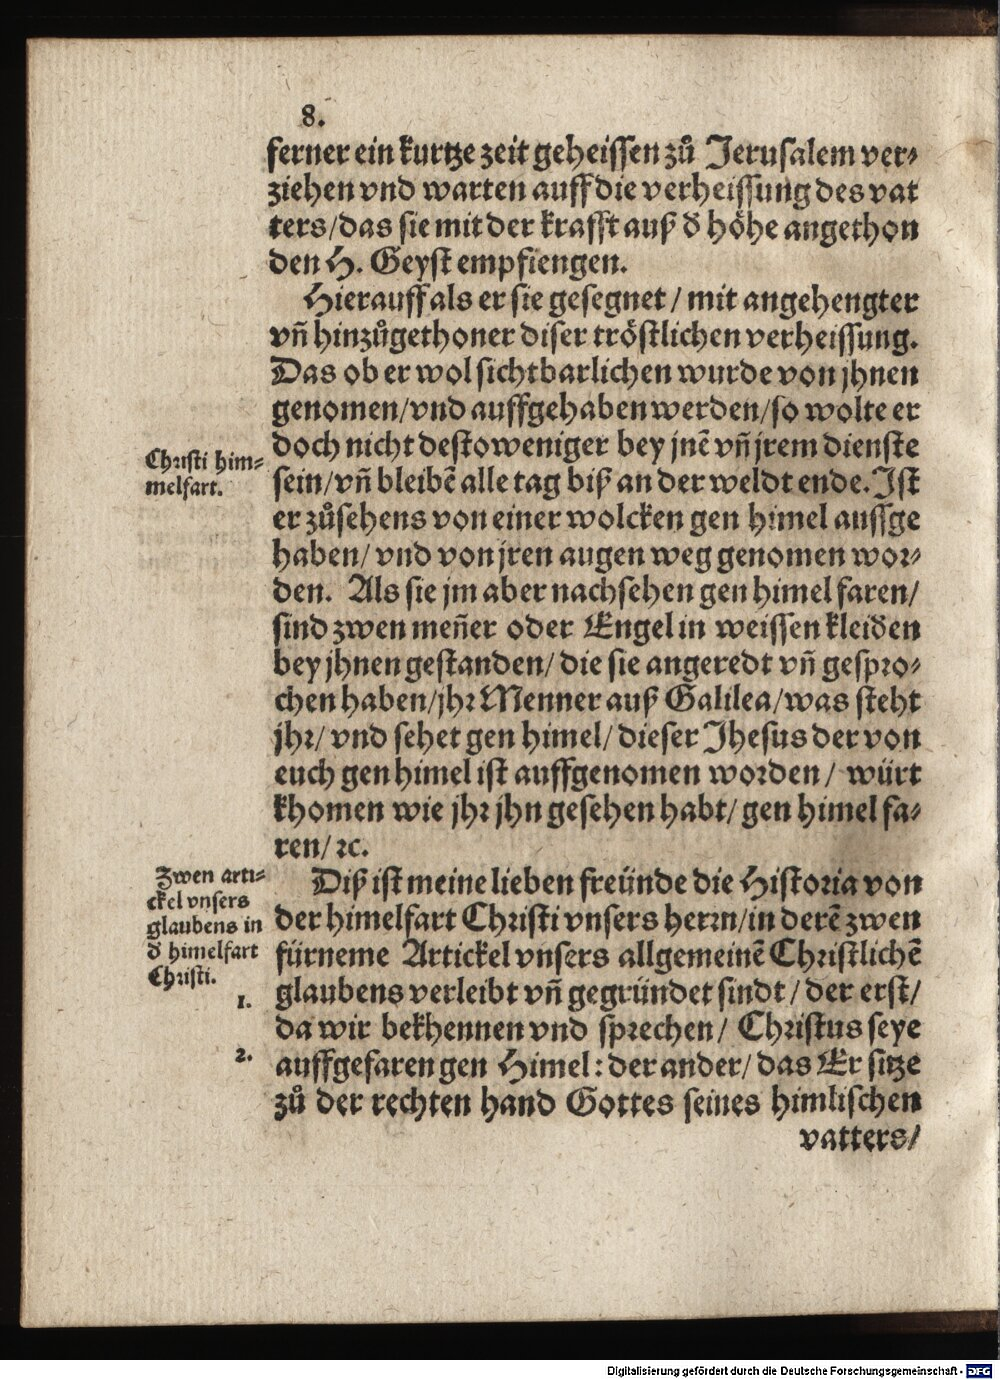 8.
ferner ein kurtze zeit geheissen zů Jerusalem ver⸗
ziehen vnd warten auff die verheissung des vat
ters/das sie mit der krafft auß d̕ höhe angethon
den H. Geyst empfiengen.
Hierauff als er sie gesegnet / mit angehengter
vñ hinzůgethoner diser tröstlichen verheissung.
Das ob er wol sichtbarlichen wurde von jhnen
genomen/vnd auffgehaben werden/so wolte er
doch nicht destoweniger bey jnē vñ jrem dienste
sein/vñ bleibē alle tag biß an der weldt ende. Ist
er zůsehens von einer wolcken gen himel auffge
haben/ vnd von jren augen weg genomen wor⸗
den. Als sie jm aber nachsehen gen himel faren/
sind zwen meñer oder Engel in weissen kleiden
bey jhnen gestanden/ die sie angeredt vñ gespro⸗
chen haben/jhr Menner auß Galilea/was steht
jhr/ vnd sehet gen himel/ dieser Jhesus der von
euch gen himel ist auffgenomen worden / würt
khomen wie jhr jhn gesehen habt/ gen himel fa⸗
ren/ ꝛc.
Diß ist meine lieben freünde die Historia von
der himelfart Christi vnsers herrn/in derē zwen
fürneme Artickel vnsers allgemeinē Christlichē
glaubens verleibt vñ gegründet sindt / der erst/
da wir bekhennen vnd sprechen/ Christus seye
auffgefaren gen Himel: der ander/ das Er sitze
zů der rechten hand Gottes seines himlischen
vatters/
Christi him⸗
melfart.
Zwen arti⸗
ckel vnsers
glaubens in
d̕ himelfart
Christi.
1.
2.
Digitalisierung gefördert durch die Deutsche Forschungsgemeinschaft - DFG